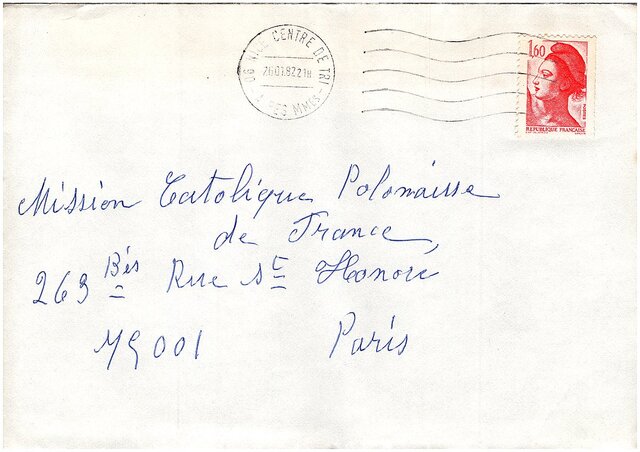 06 NICE CENTRE DE TRI
26 01 82 21H
ALPES MMES
1,60
REPUBLIQUE FRANÇAISE
Mission Catolique Polonaisse
de France,
263 Bis Rue St Honoré
75001 Paris